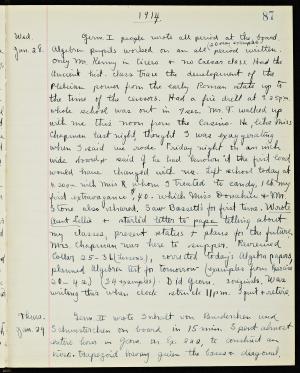 1914 87
Wed. Germ I people wrote all period at the board.
Jan. 28. Algebra pupils worked on an all period written.
Only Mr. Kenny in Cicero & no Caesar class. Had the
Ancient hist. class trace the development of the
Plebian power from the early Roman state up to
the time of the censors. Had a fire drill at 2:25 p.m.
whole school was out in
with me this noon from the Casino. He, like Miss
Chapman last night, thought I was exaggerating
when I said we rode Friday night on an inch
wide board & said if he had known it the first load
would have changed with me. Left school today at
with Miss R. whom I treated to candy,
first extravagance, which Miss Donahue & Mr.
Stone also shared. Saw Bassett for first time. Wrote
Aunt Lillie & started letter to papa telling about
my classes, present status & plans for the future.
Mrs. Chapman was here to supper. Reviewed
Collar 25-36 corrected today's Algebra papers,
planned Algebra test for tomorrow (examples from
20-42) (34 examples). Did Geom.
writing this when clock struck 11 p.m.
Thurs. Germ II wrote Inhalt von
Jan. 29 on board in 15 min. Spent almost
entire hour in Geom. on to construct an
isos. trapezoid having given the bases & diagonal,